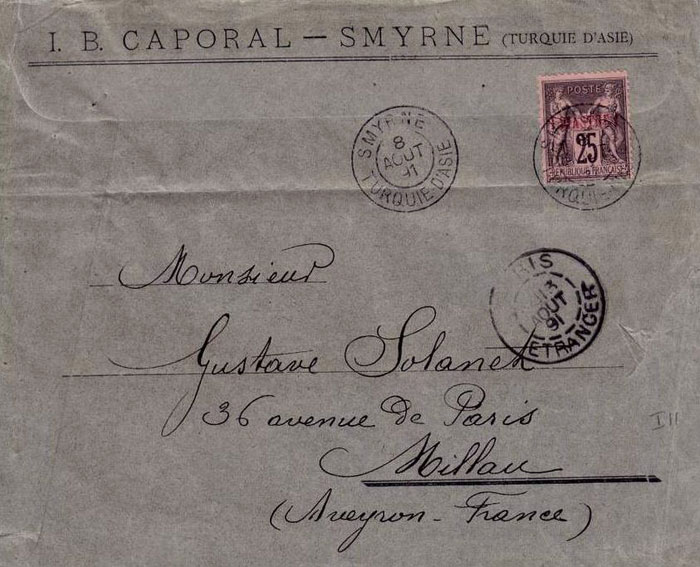 I. B. CAPORAL — SMYRNE (TURQUIE D'ASIE)
POSTE
25
RÉPUBLIQUE FRANÇAISE
SMYRNE
8
AOUT
91
TURQUIE D'ASIE
13
AOUT
91
ETRANGER
Monsieur
Gustave Solanet
36 avenue de Paris
Millau
(Aveyron - France)
III